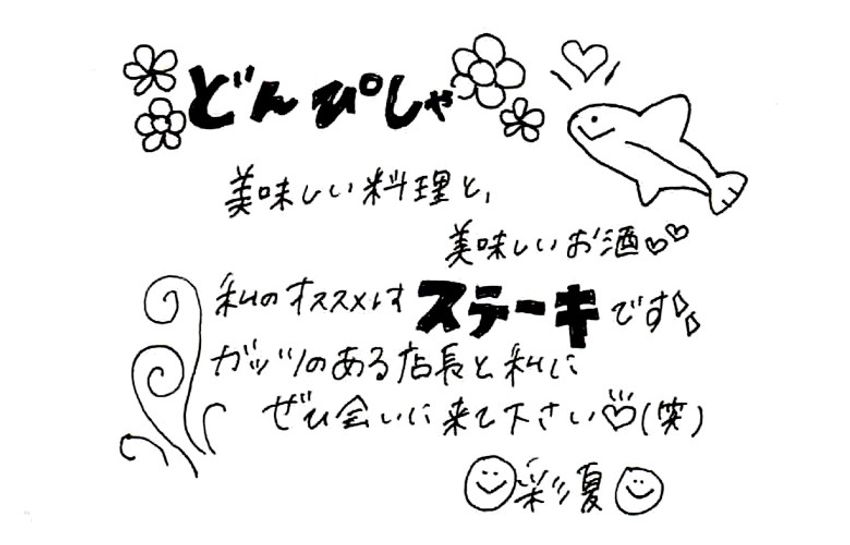 どんぴしゃ
美味しい料理と、
美味しいお酒♡♡
私のオススメはステーキです
ガッツのある店長と私に
ぜひ会いに来て下さい♡(笑)
彩夏